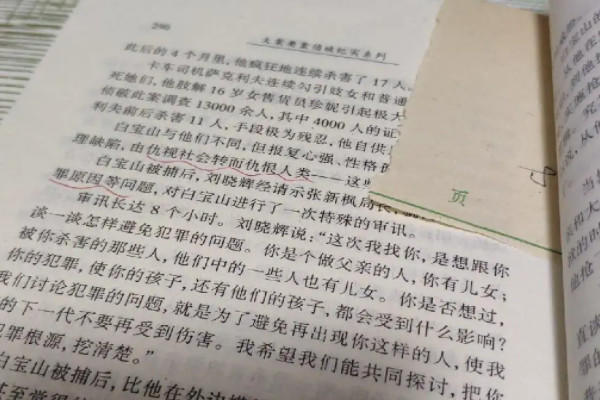 290
大案要案侦破纪实系列
此后的4个月里，他疯狂地连续杀害了17人
卡车司机萨克利夫连续勾引妓女和普通
死她们，他肢解16岁女售货员珍妮引起极大
侦破此案调查13000余人，其中4000人的证
利夫前后杀害11人，手段极为残忍，他自供
白宝山与他们不同，但报复心强、性格
理缺陷，由仇视社会转而仇恨人类——这
白宝山被捕后，刘晓辉经请示张新枫局长，
罪原因等问题，对白宝山进行了一次特殊的审讯。
审讯长达8个小时。刘晓辉说：“这次我找你，是想跟你
谈一谈怎样避免犯罪的问题。你是个做父亲的人，你有儿女；
被你杀害的那些人，他们中的一些人也有儿女。你是否想过，
你的犯罪，使你的孩子，还有他们的孩子，都会受到什么影响？
我们讨论犯罪的问题，就是为了避免再出现你这样的人，使我
的下一代不要再受到伤害。我希望我们能共同探讨，把你
犯罪根源，挖清楚。”
白宝山被捕后，比他在外边
甚至觉得
页